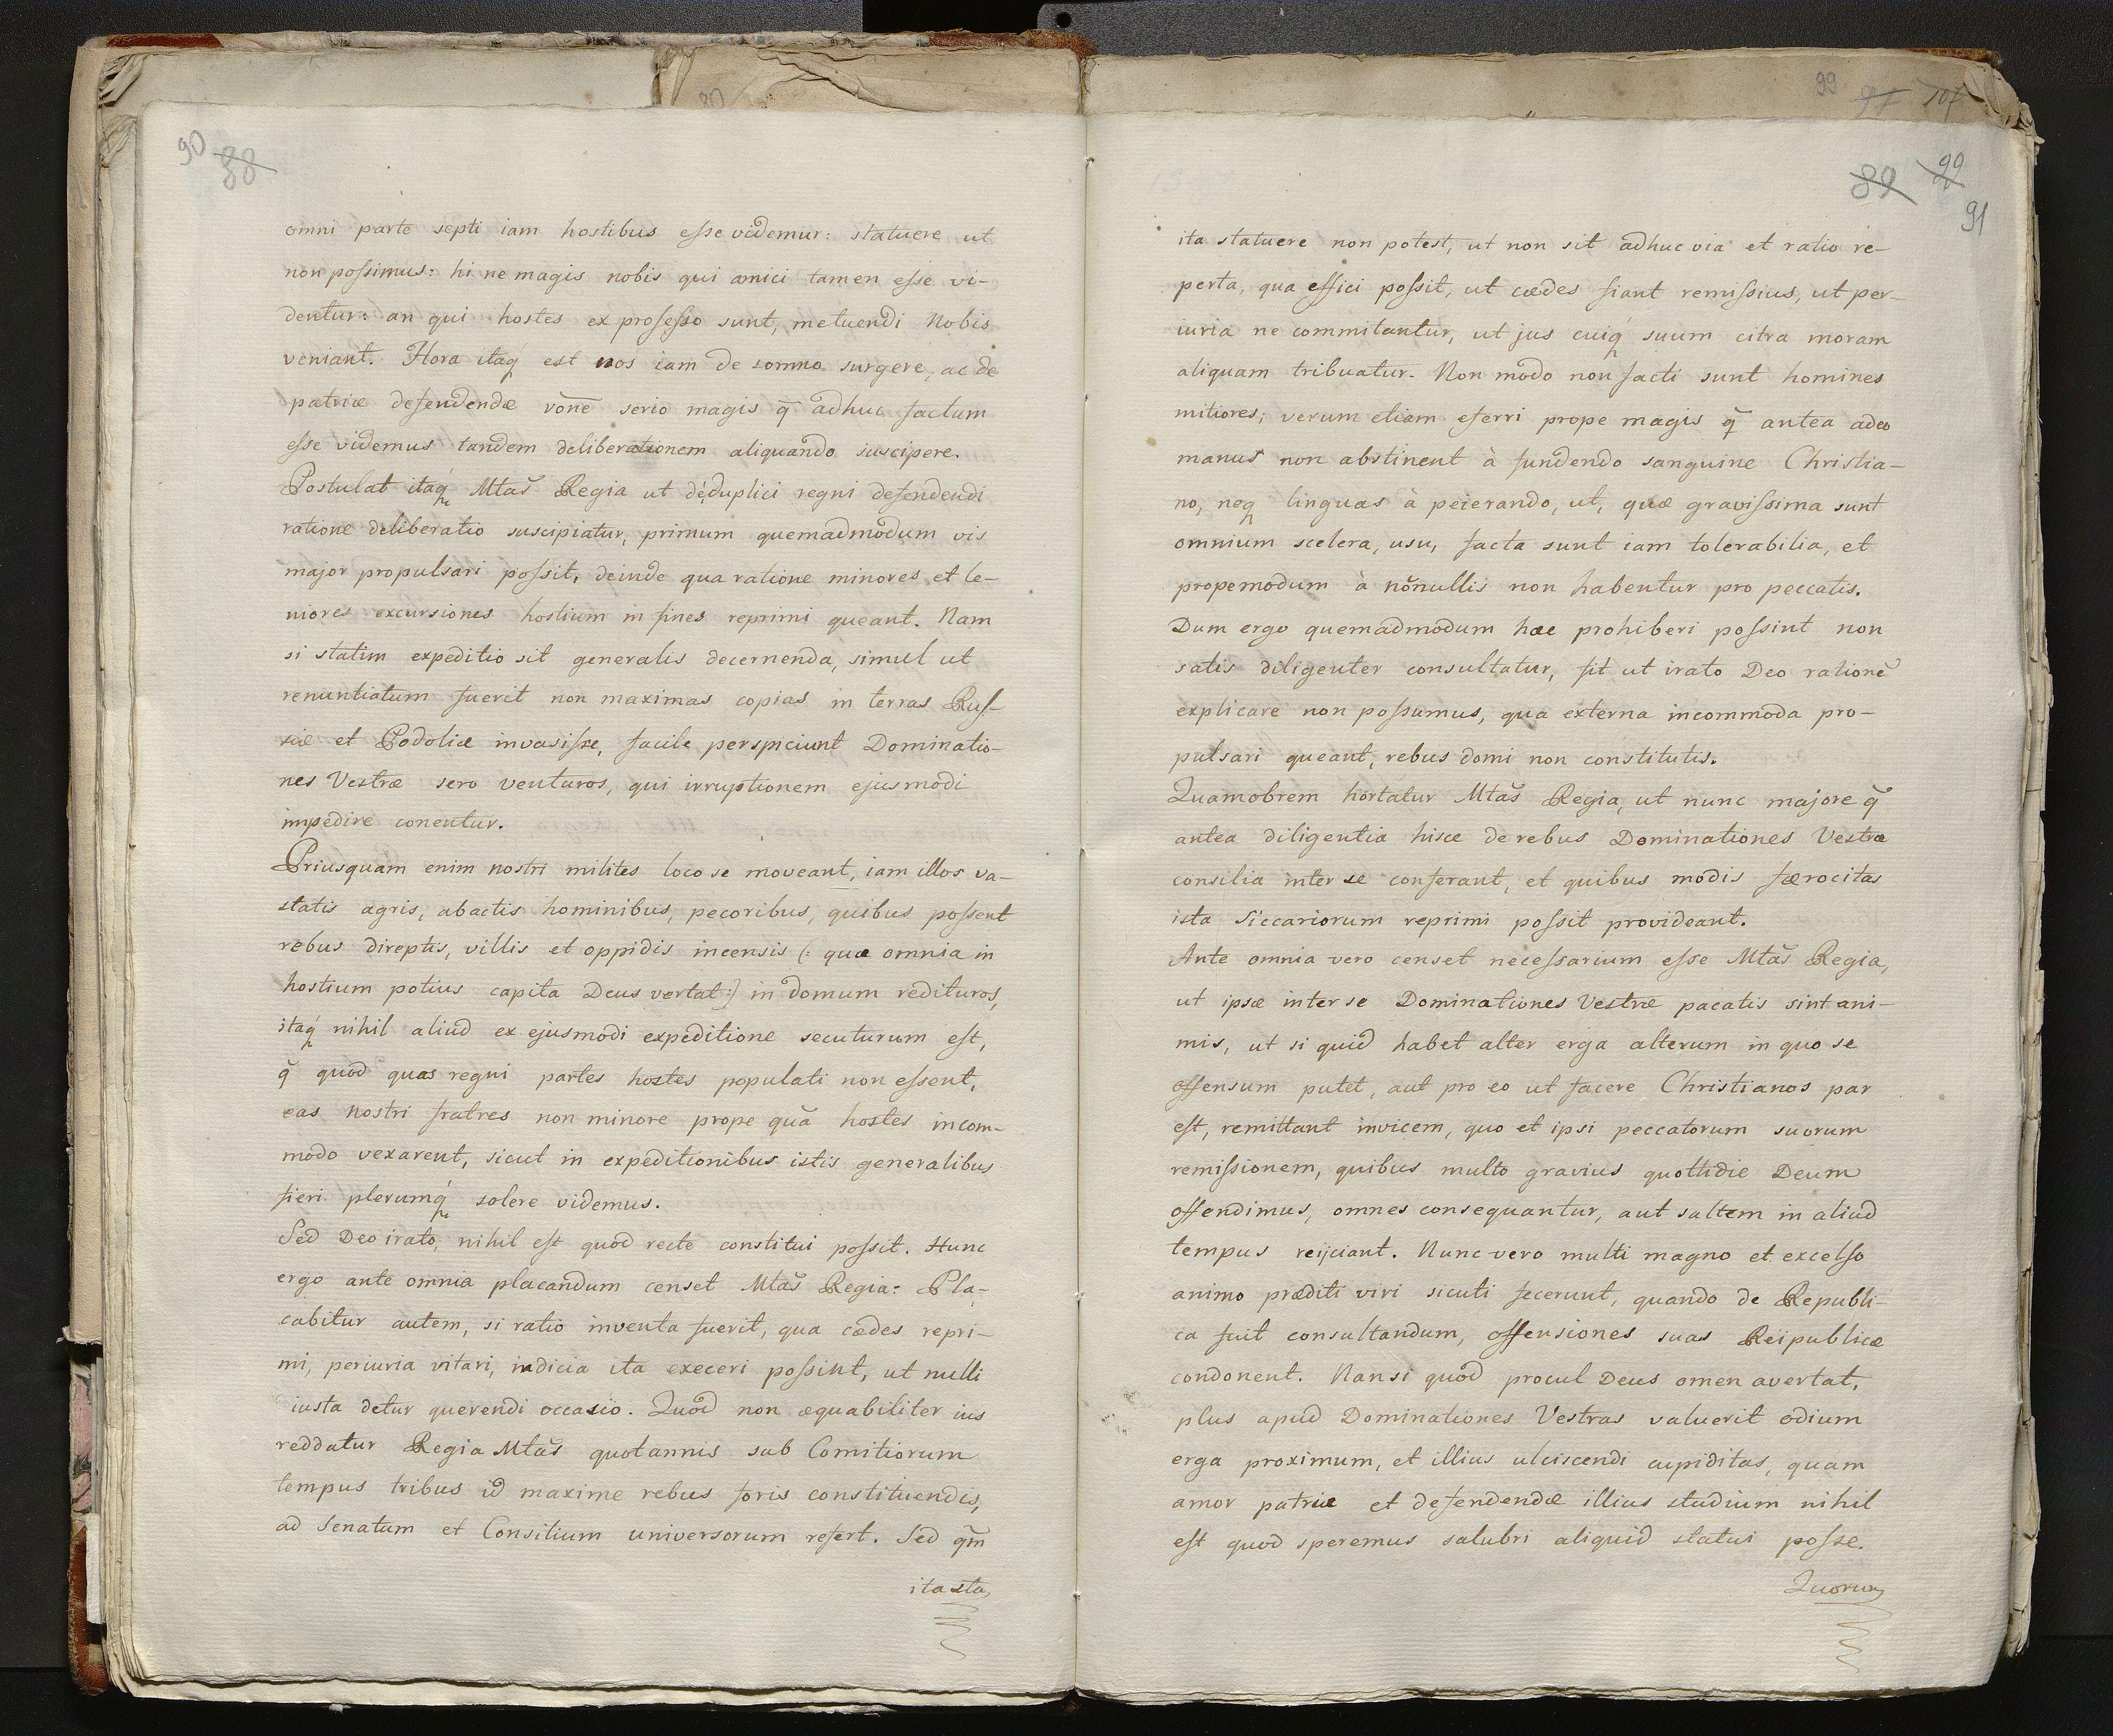 90 88
omni parte septi iam hostibus esse videmur: statuere ut
non possimus: hi ne magis nobis qui amici tamen esse vi-
dentur: an qui hostes ex professo sunt, metuendi Nobis
veniant. Hora itaq́ est nos iam de somno surgere, ac de
patriæ defendendæ rōne serio magis q̄ adhuc factum
esse videmus tandem deliberationem aliquando suscipere.
Postulat itaq́ Mtas̃ Regia ut de duplici regni defendendi
ratione deliberatio suscipiatur, primum quemadmodum vis
major propulsari possit, deinde qua ratione minores et le-
niores excursiones hostium in fines reprimi queant. Nam
si statim expeditio sit generalis decernenda, simul ut
renuntiatum fuerit non maximas copias in terras Rus-
siæ et Podoliæ invasisse, facile perspiciunt Dominatio-
nes Vestræ sero venturos, qui irruptionem ejusmodi
impedire conentur.
Priusquam enim nostri milites loco se moveant, iam illos va-
statis agris, abactis hominibus, pecoribus, quibus possent
rebus direptis, villis et oppidis incensis (: quæ omnia in
hostium potius capita Deus vertat :) in domum redituros,
itaq́ nihil aliud ex ejusmodi expeditione secuturum est,
q̃ quod quas regni partes hostes populati non essent,
eas nostri fratres non minore prope quã hostes incom-
modo vexarent, sicut in expeditionibus istis generalibus
fieri plerumq́ solere videmus.
Sed Deo irato, nihil est quod recte constitui possit. Hunc
ergo ante omnia placandum censet Mtas̃ Regia: Pla-
cabitur autem, si ratio inventa fuerit, qua cædes repri-
mi, periuria vitari, iudicia ita execeri possint, ut nulli
iusta detur querendi occasio. Quod non æquabiliter ius
reddatur Regia Mtas̃ quotannis sub Comitiorum
tempus tribus id maxime rebus foris constituendis,
ad Senatum et Consilium universorum refert. Sed qm̃
ita sta
99 97 107
89 99
91
ita statuere non potest, ut non sit adhuc via et ratio re-
perta, qua effici possit, ut cædes fiant remissius, ut per-
iuria ne commitantur, ut jus cuiq́ suum citra moram
aliquam tribuatur. Non modo non facti sunt homines
mitiores; verum etiam eferri prope magis q̃ antea adeo
manus non abstinent à fundendo sanguine Christia-
no, neq linguas à peierando, ut, quæ gravissima sunt
omnium scelera, usu, facta sunt iam tolerabilia, et
propemodum à nõnullis non habentur pro peccatis.
Dum ergo quemadmodum hæc prohiberi possint non
satis diligenter consultatur, fit ut irato Deo rationẽ
explicare non possumus, qua externa incommoda pro-
pulsari queant, rebus domi non constitutis.
Quamobrem hortatur Mtas̃ Regia, ut nunc majore q̃
antea diligentia hisce de rebus Dominationes Vestræ
consilia inter se conferant, et quibus modis færocitas
ista Siccariorum reprimi possit provideant.
Ante omnia vero censet necessarium esse Mtas̃ Regia,
ut ipsæ inter se Dominationes Vestræ pacatis sint ani-
mis, ut si quid habet alter erga alterum in quo se
offensum putet, aut pro eo ut facere Christianos par
est, remittant invicem, quo et ipsi peccatorum suorum
remissionem, quibus multo gravius quottidie Deum
offendimus, omnes consequantur, aut saltem in aliud
tempus reijciant. Nunc vero multi magno et excelso
animo præditi viri sicuti fecerunt, quando de Republi-
ca fuit consultandum, offensiones suas Reipublicæ
condonent. Nan si quod procul Deus omen avertat,
plus apud Dominationes Vestras valuerit odium
erga proximum, et illius ulciscendi cupiditas, quam
amor patriæ et defendendæ illius studium nihil
est quod speremus salubri aliquid statui posse.
Quorum